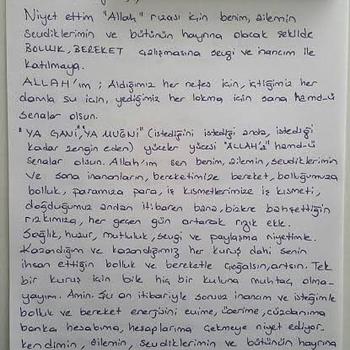 Niyet ettim "Allah" rızası için benim, ailemin
sevdiklerimin ve bütünün hayrına olacak şekilde
BOLLUK, BEREKET çalışmasına sevgi ve inancım ile
katılmaya.
ALLAH'ım ; Aldığımız her nefes için, içtiğimiz her
damla su için, yediğimiz her lokma için sana hamd-ü
senalar olsun.
"YA GANİ, YA MUĞNİ" (istediğini istediği anda, istediği
kadar zengin eden) yüceler yücesi "ALLAH'a" hamd-ü
senalar olsun. Allah'ım sen benim, ailemin, sevdiklerimin
ve sana inananların, bereketimize bereket, bolluğumuza
bolluk, paramıza para, iş kısmetlerimize iş kısmeti,
doğduğumuz andan itibaren bana, bizlere bahşettiğin
rızkımıza, her geçen gün artarak rızık ekle.
Sağlık, huzur, mutluluk, sevgi ve paylaşma niyetimle.
Kazandığım ve kazandığımız her kuruş dahi senin
ihsan ettiğin bolluk ve bereketle çoğalsın, artsın. Tek
bir kuruş için bile hiç bir kuluna muhtaç olma-
yayım. Amin. Şu an itibariyle sonsuz inancım ve isteğimle
bolluk ve bereket enerjisini evime, üzerime, cüzdanıma
banka hesabıma, hesaplarıma çekmeye niyet ediyor.
kendimin, ailemin, sevdiklerimin ve bütünün hayrına